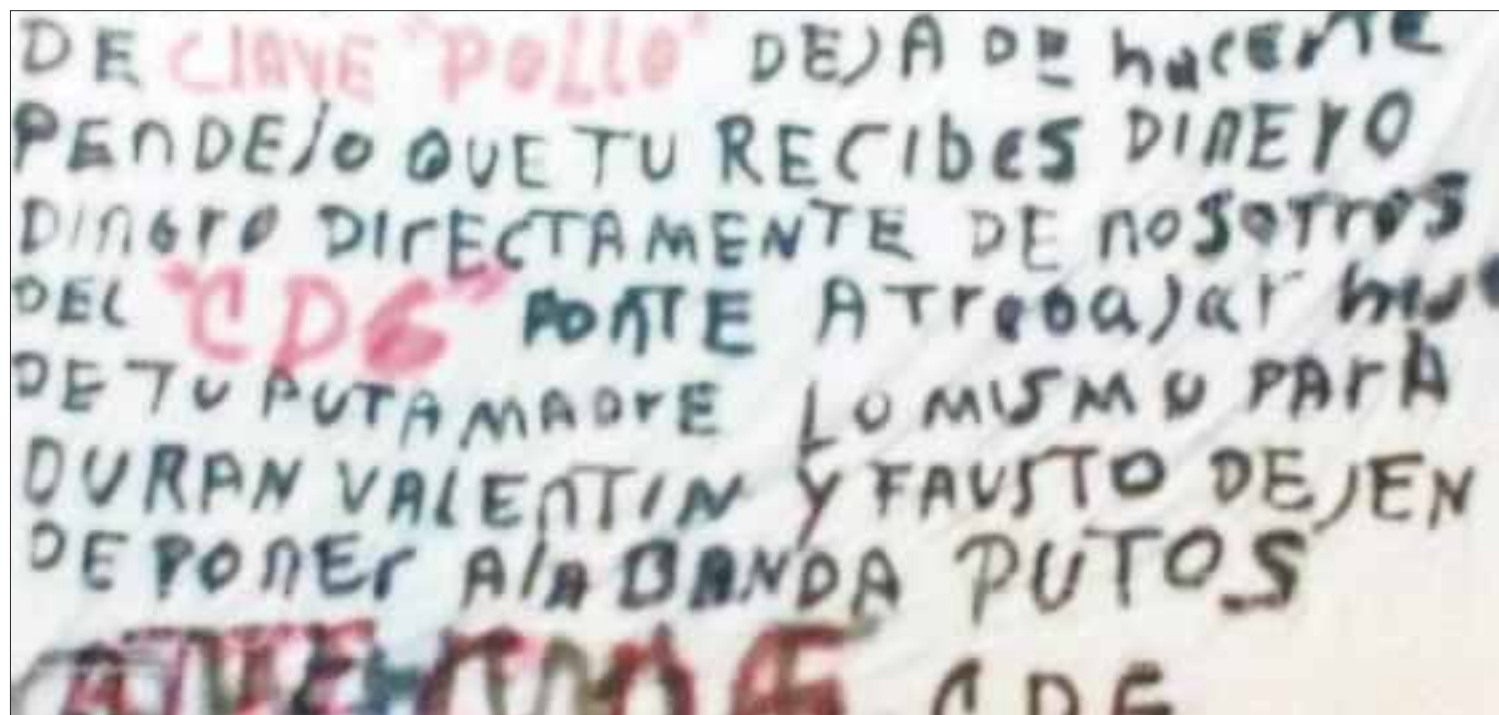 DE CLAVE "POLLO" DEJA DE hacerte
PEnDEJo QUE TU RECIbes DINErO
DInero DIrECTAMENTE DE noSoTros
DEL "CDG" PONTE A Trabajar
DE TU PUTA MADrE LO MISMO PArA
DURAN VALEnTIN Y FAUSTO DEJEN
DE PONEr A lA BANDA PUTOS
CDG